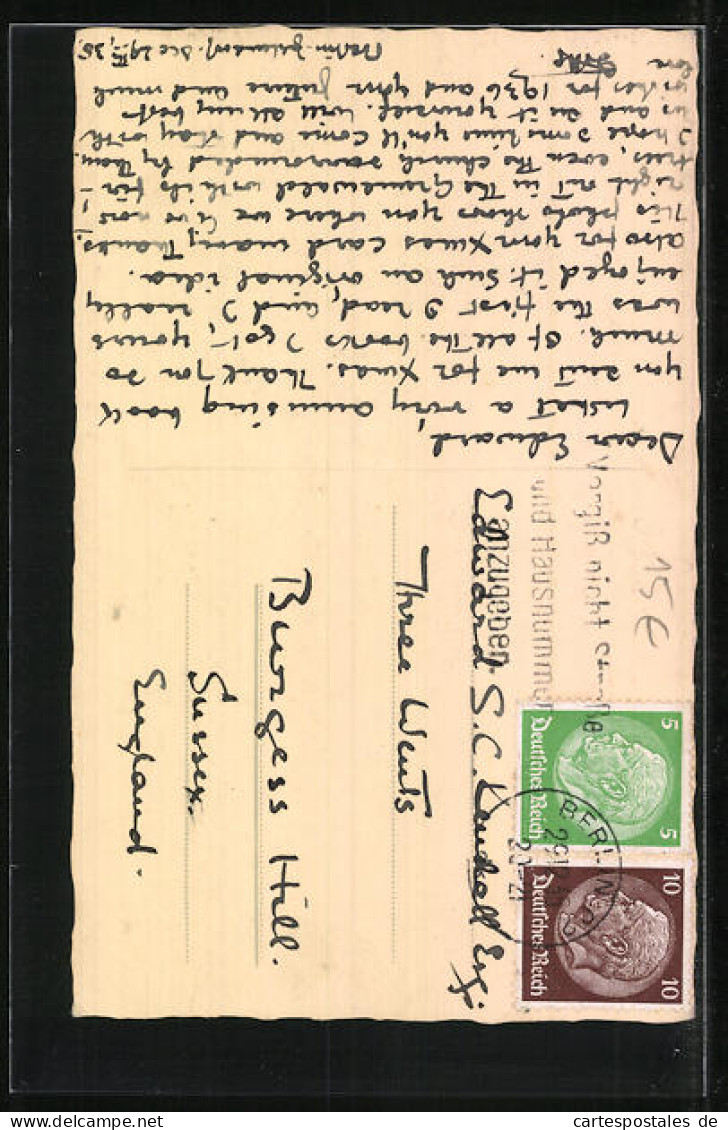 Berlin-Zehlendorf. Dec 29th, 35.
Dear Edward,
what a very amusing book
you sent me for Xmas. Thank you so
much. Of all the books I got, yours
was the first I read, and I really
enjoyed it. Such an original idea.
Also for your Xmas card many thanks.
This photo shows you where we live now,
right out in the Grunewald with its fir-
trees, even the church surrounded by them.
I hope some time you'll come and stay with
us and see it yourself. With all my best
wishes for 1936 and your future and much
love
Vergiß nicht Straße
und Hausnummer
anzugeben
15€
Edward S.C. Kendall Esq.
Three Wents
Burgess Hill.
Sussex.
England.
5
Deutsches Reich
5
10
Deutsches Reich
10
BERLIN
29.12.
20-21
www.cartespostales.de